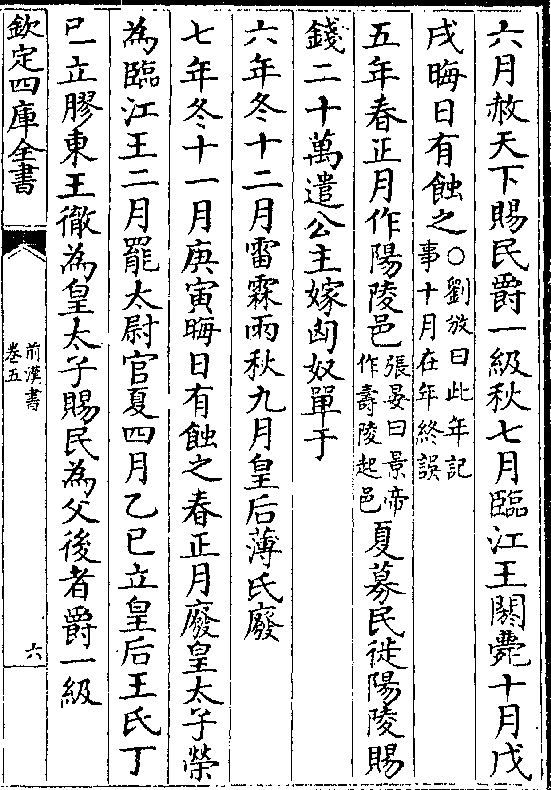 六月赦天下賜民爵一級秋七月臨江王閼薨十月戊
戌晦日有蝕之○劉攽曰此年記事十月在年終誤
五年春正月作陽陵邑張晏曰景帝作壽陵起邑夏募民徙陽陵賜
錢二十萬遣公主嫁匈奴單于
六年冬十二月雷霖雨秋九月皇后薄氏廢
七年冬十一月庚寅晦日有蝕之春正月廢皇太子榮
為臨江王二月罷太尉官夏四月乙巳立皇后王氏丁
巳立膠東王徹為皇太子賜民為父後者爵一級
欽定四庫全書
前漢書
卷五
六